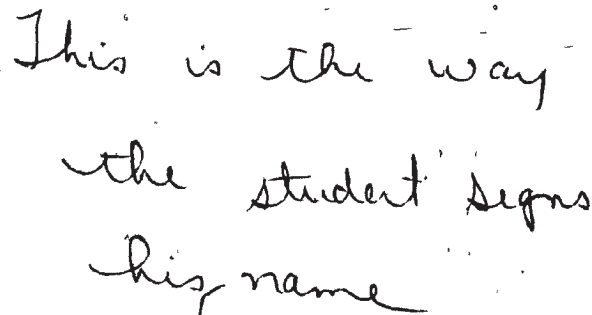 This is the way
the student signs
his name